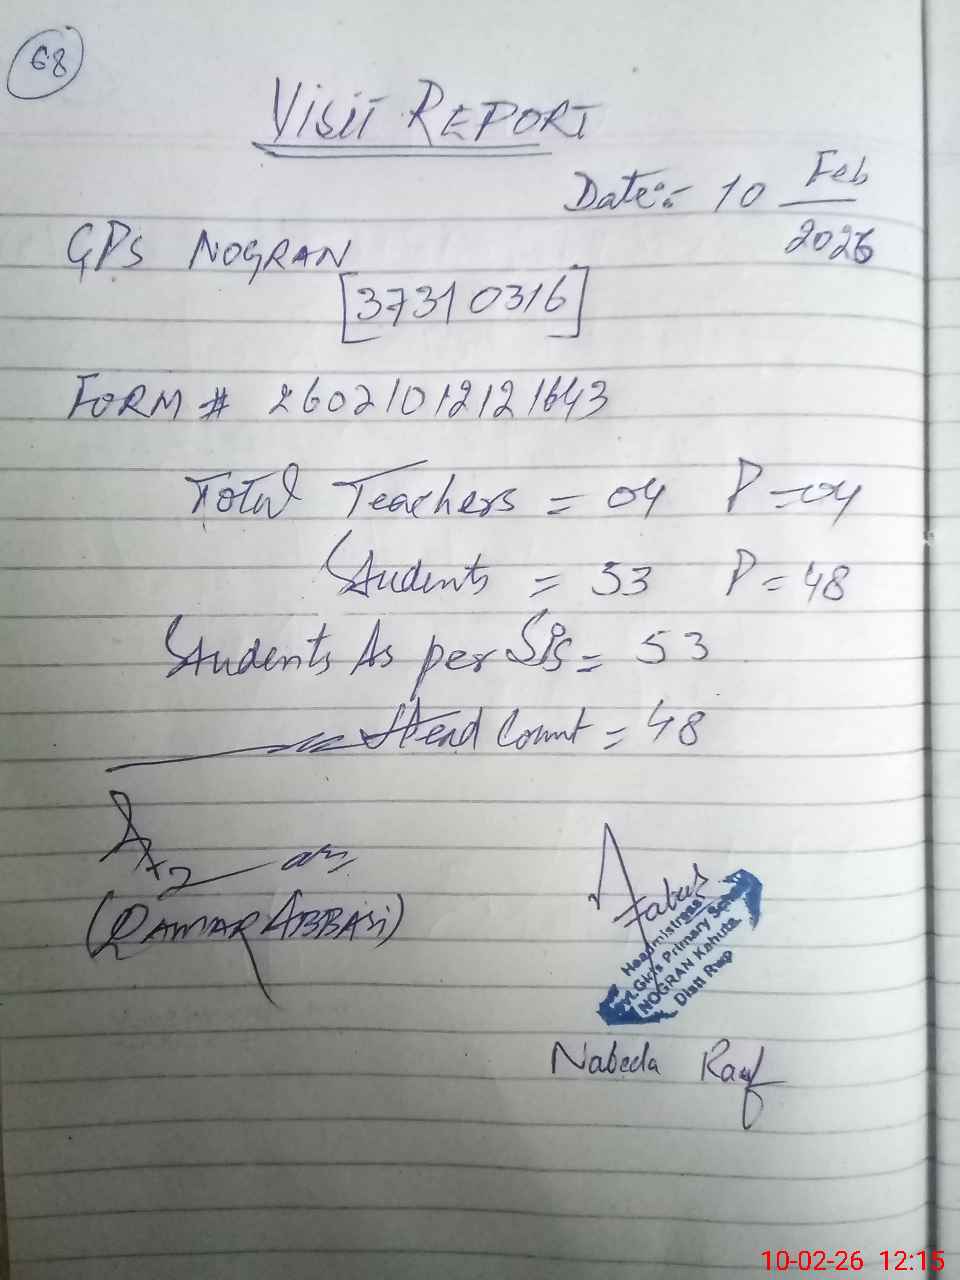 68
VISIT REPORT
Date:- 10 Feb
2026
GPS NOGRAN
[37310316]
FORM # 26021012121643
Total Teachers = 04 P = 04
Students = 53 P = 48
Students As per Sis = 53
Head Count = 48
(QAMAR ABBASI)
Headmistress
Girls Primary
NOGRAN Kahuta
Distt Rwp
Nabeela Rauf
10-02-26 12:15